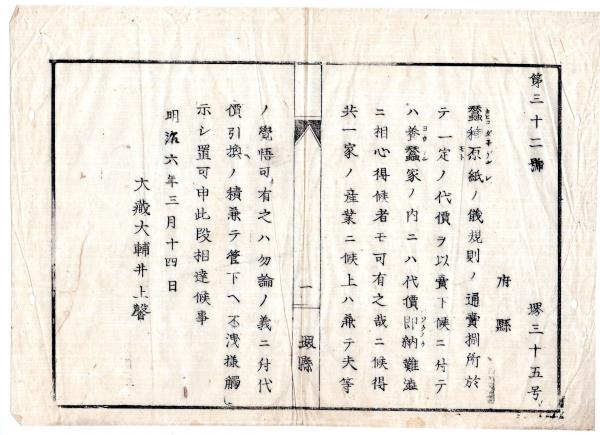 第三十二號
堺三十五号
府縣
蠶種原紙ノ儀規則ノ通賣捌所於
テ一定ノ代價ヲ以賣下候ニ付テ
ハ養蠶家ノ内ニハ代價即納難澁
ニ相心得候者モ可有之哉ニ候得
共一家ノ産業ニ候上ハ兼テ夫等
一
堺縣
ノ覺悟可有之ハ勿論ノ義ニ付代
價引換ノ積兼テ管下ヘ不洩樣觸
示シ置可申此段相達候事
明治六年三月十四日
大藏大輔井上馨